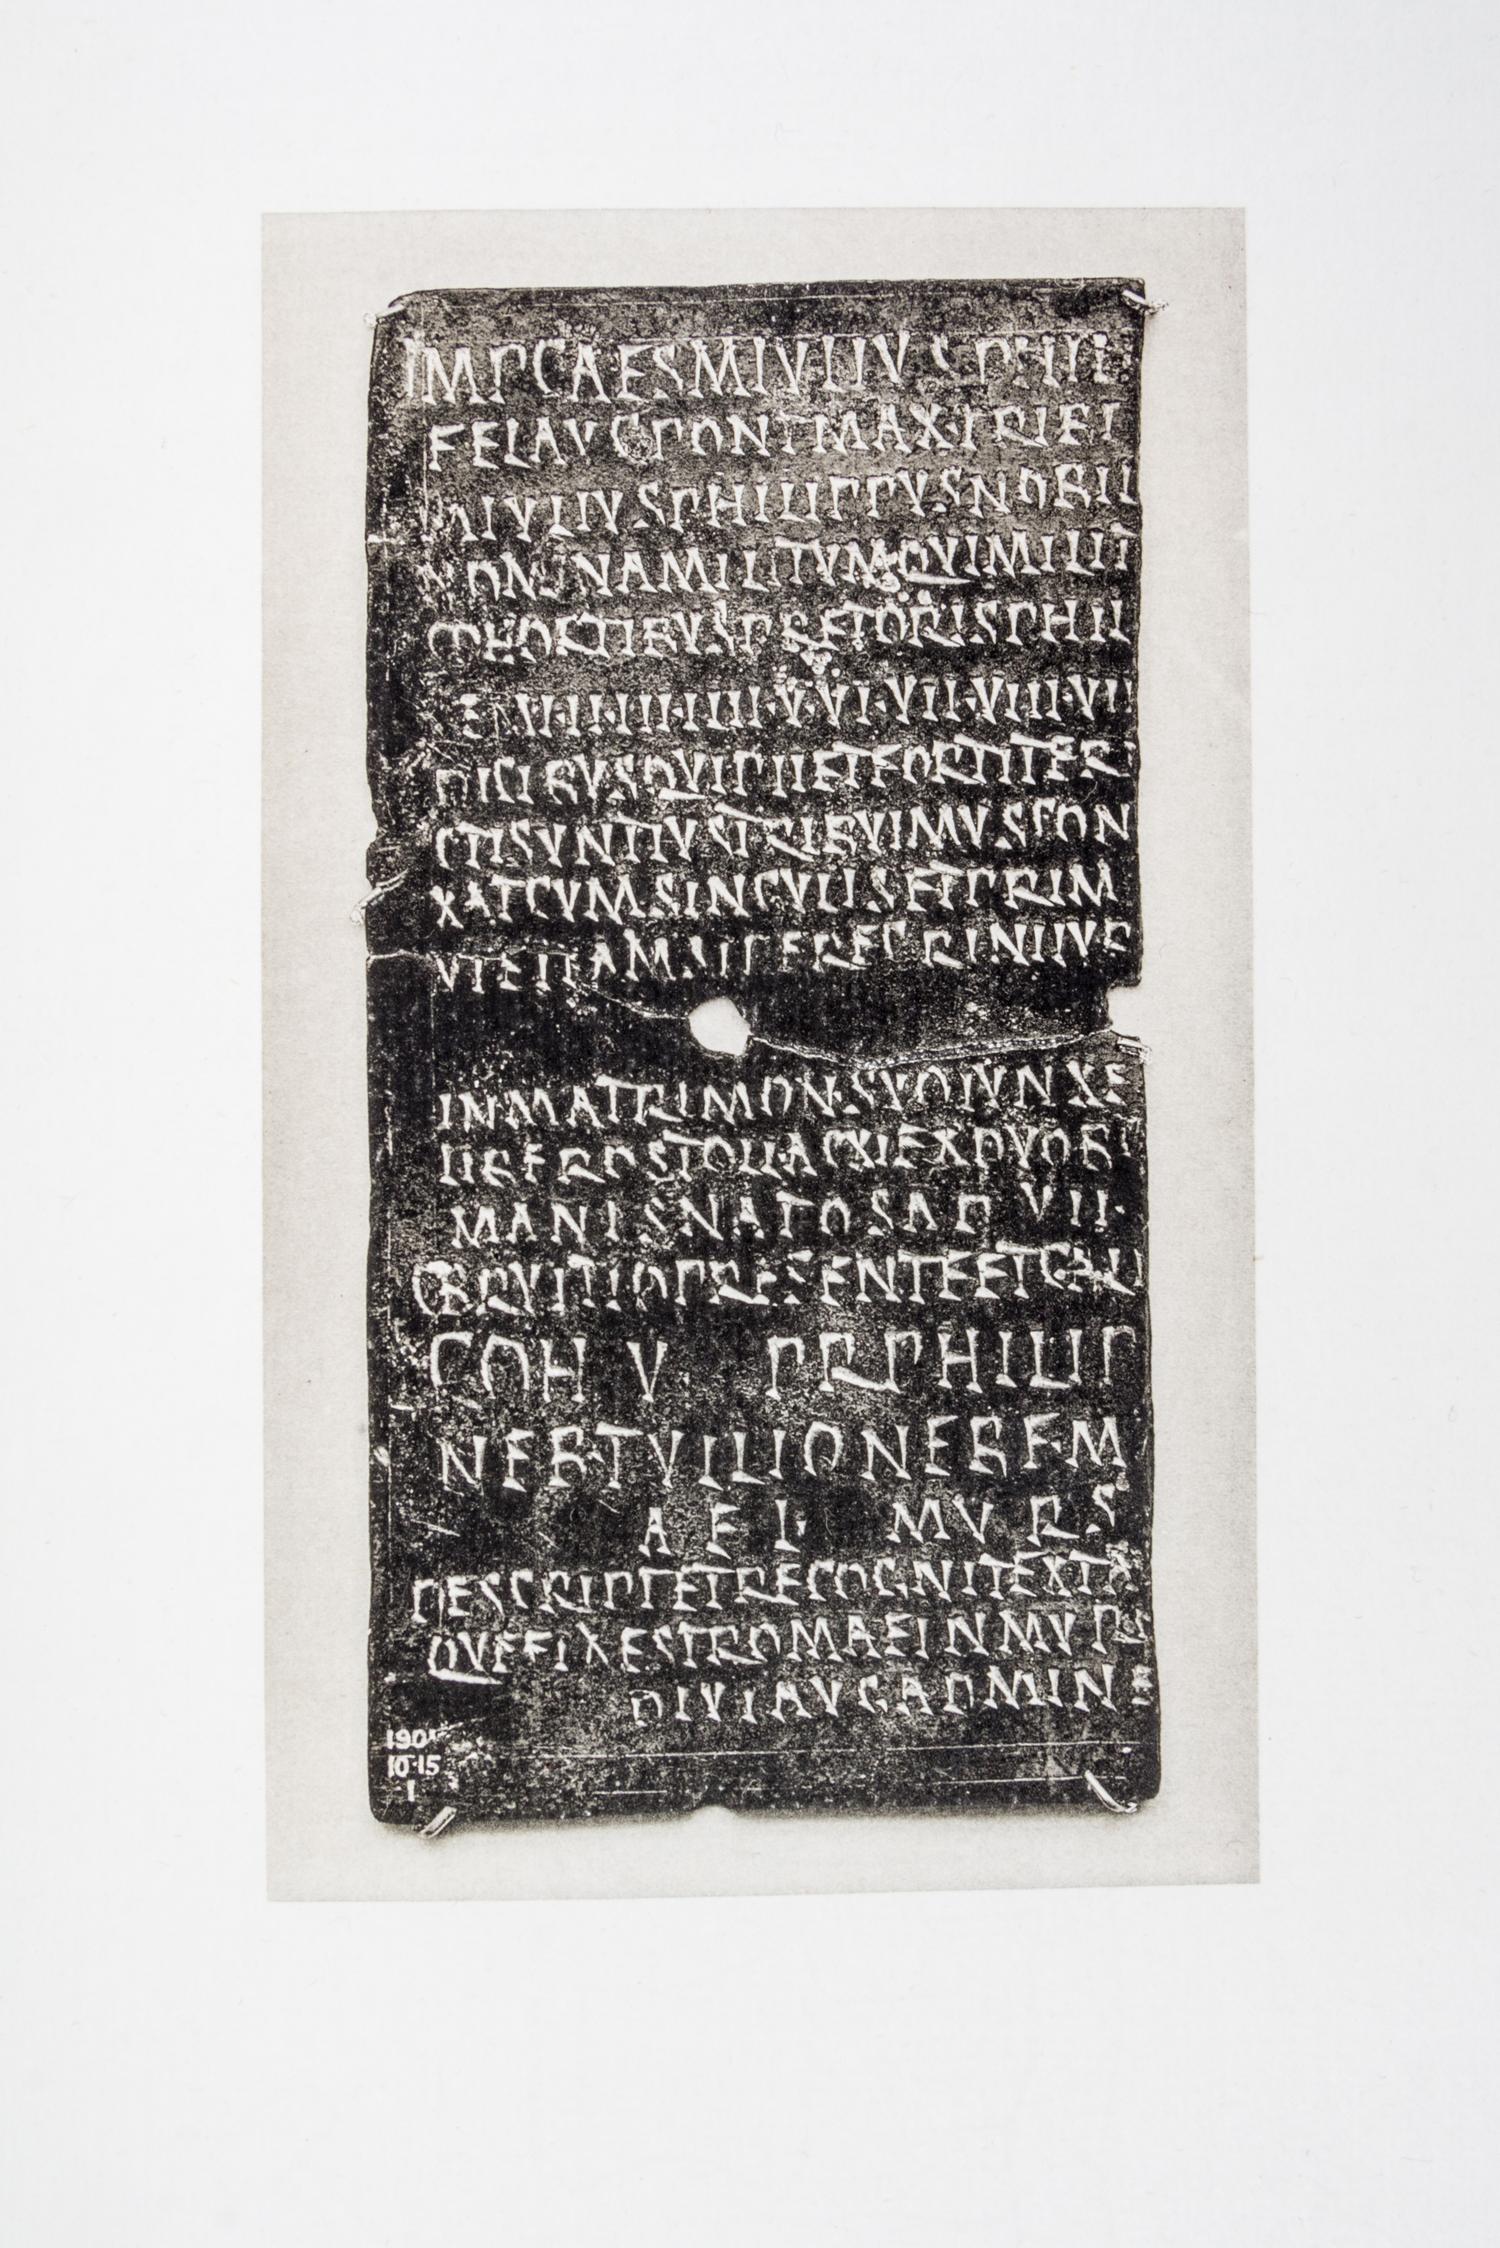 IMPCAESMIVLIVSPHILI
FELAVGPONTMAXTRIBI
MIVLIVSPHILIPPVSNOBIL
NOMINAMILITVMQVIMILIT
COHORTIBVSPRETORISPHIL
I·II·III·IIII·V·VI·VII·VIII·VII
PICIBVSQVIPIIETFORTITER
CTISVNTIVSTRIBVIMVSCON
XATCVMSINGVLISETPRIM
VTETIAMSIPEREGRINIIVR
INMATRIMONSVOIVNXE
DEROSTOLLACXIEXDVOB
MANISNATOSAD VII·
BRVTTIOPRESENTEET
COH V PRPHILIP
NEBTVILIONEBF·M
AEL· MVRS
DESCRIPTETRECOGNITEXTA
QVEFIXESTROMAEINMVR
DIVIAVGADMIN
190
10·15
1